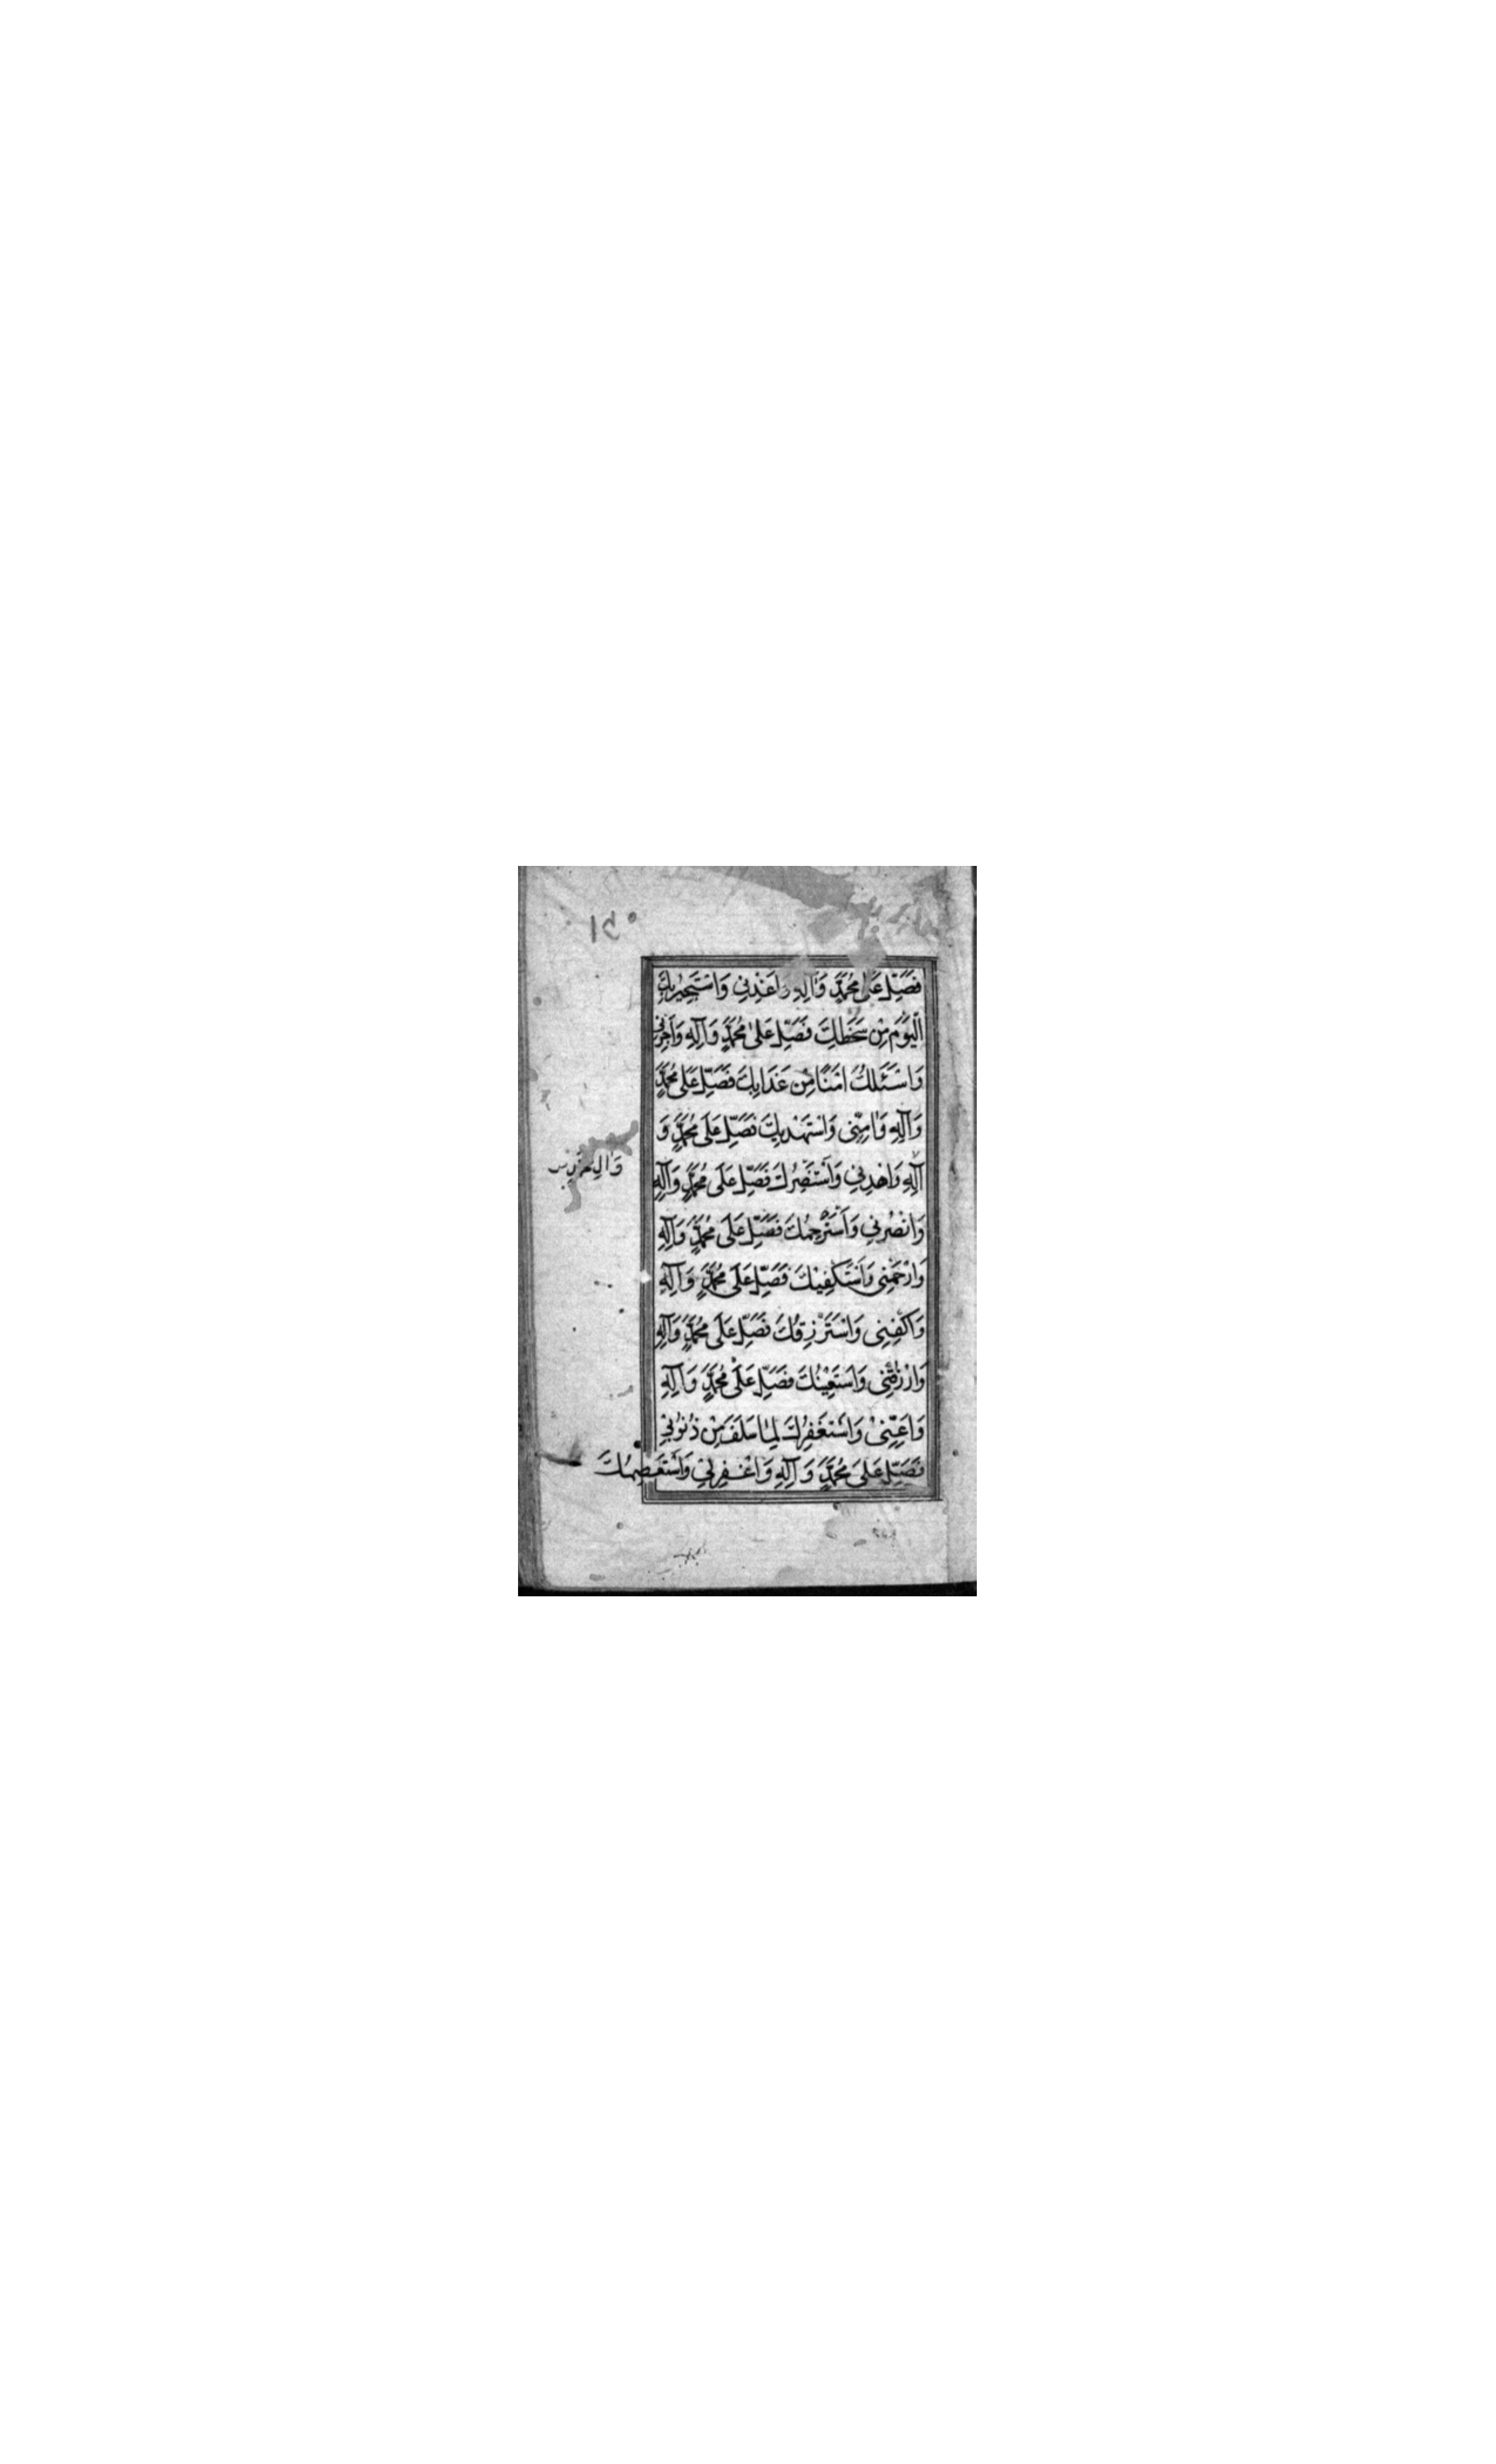 فَصَلِّ عَلىٰ مُحَمَّدٍ وَاٰلِهِ وَاَعِذْنِي وَاَسْتَجِيرُ بِكَ
الْيَوْمَ مِنْ سَخَطِكَ فَصَلِّ عَلىٰ مُحَمَّدٍ وَآلِهِ وَاَجِرْنِي
وَاَسْئَلُكَ اَمْنًا مِنْ عَذَابِكَ فَصَلِّ عَلى مُحَمَّدٍ
وَآلِهِ وَاٰمِنِّى وَاَسْتَهْدِيكَ فَصَلِّ عَلَى مُحَمَّدٍ وَ
آلِهِ وَاهْدِنِي وَاَسْتَنْصِرُكَ فَصَلِّ عَلَى مُحَمَّدٍ وَآلِهِ
وَانْصُرْنِي وَاَسْتَرْحِمُكَ فَصَلِّ عَلَى مُحَمَّدٍ وَآلِهِ
وَارْحَمْنِى وَاَسْتَكْفِيْكَ فَصَلِّ عَلَى مُحَمَّدٍ وَآلِهِ
وَاكْفِنِى وَاَسْتَرْزِقُكَ فَصَلِّ عَلَى مُحَمَّدٍ وَآلِهِ
وَارْزُقْنِى وَاَسْتَعِيْنُكَ فَصَلِّ عَلَى مُحَمَّدٍ وَآلِهِ
وَاَعِنِّىْ وَاَسْتَغْفِرُكَ لِمَا سَلَفَ مِنْ ذُنُوْبِيْ
فَصَلِّ عَلَى مُحَمَّدٍ وَآلِهِ وَاغْفِرْلِيْ وَاَسْتَعْصِمُكَ